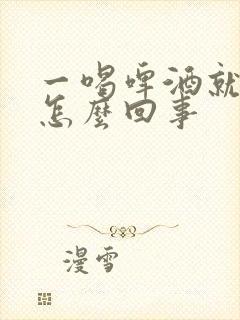 一喝啤酒就
怎麼回事
漫雪